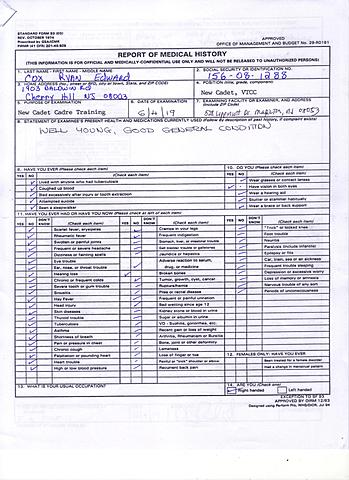 STANDARD FORM 93 (EG)
REV. OCTOBER 1974
Prescribed by GSA/ICMR
FPMR (41 CFR) 201-45.505
APPROVED
OFFICE OF MANAGEMENT AND BUDGET No. 29-R0191
REPORT OF MEDICAL HISTORY
(THIS INFORMATION IS FOR OFFICIAL AND MEDICALLY-CONFIDENTIAL USE ONLY AND WILL NOT BE RELEASED TO UNAUTHORIZED PERSONS)
1. LAST NAME - FIRST NAME - MIDDLE NAME
Cox Ryan Edward
2. SOCIAL SECURITY OR IDENTIFICATION NO.
156-08-1288
3. HOME ADDRESS (No., street or RFD, city or town, State, and ZIP CODE)
1903 BALDWIN RD
Cherry Hill NJ 08003
4. POSITION (title, grade, component)
New Cadet, VTCC
5. PURPOSE OF EXAMINATION
New Cadet Cadre Training
6. DATE OF EXAMINATION
6/4/19
7. EXAMINING FACILITY OR EXAMINER, AND ADDRESS
(Include ZIP Code)
08053
8. STATEMENT OF EXAMINEE'S PRESENT HEALTH AND MEDICATIONS CURRENTLY USED (Follow by description of past history, if complaint exists)
WELL YOUNG, GOOD GENERAL CONDITION
9. HAVE YOU EVER (Please check each item)
YES NO (Check each item)
Lived with anyone who had tuberculosis
Coughed up blood
Bled excessively after injury or tooth extraction
Attempted suicide
Been a sleepwalker
10. DO YOU (Please check each item)
YES NO (Check each item)
Wear glasses or contact lenses
Have vision in both eyes
Wear a hearing aid
Stutter or stammer habitually
Wear a brace or back support
11. HAVE YOU EVER HAD OR HAVE YOU NOW (Please check at left of each item)
YES NO DON'T KNOW (Check each item)
Scarlet fever, erysipelas
Rheumatic fever
Swollen or painful joints
Frequent or severe headache
Dizziness or fainting spells
Eye trouble
Ear, nose, or throat trouble
Hearing loss
Chronic or frequent colds
Severe tooth or gum trouble
Sinusitis
Hay Fever
Head injury
Skin diseases
Thyroid trouble
Tuberculosis
Asthma
Shortness of breath
Pain or pressure in chest
Chronic cough
Palpitation or pounding heart
Heart trouble
High or low blood pressure
YES NO DON'T KNOW (Check each item)
Cramps in your legs
Frequent indigestion
Stomach, liver, or intestinal trouble
Gall bladder trouble or gallstones
Jaundice or hepatitis
Adverse reaction to serum, drug, or medicine
Broken bones
Tumor, growth, cyst, cancer
Rupture/hernia
Piles or rectal disease
Frequent or painful urination
Bed wetting since age 12
Kidney stone or blood in urine
Sugar or albumin in urine
VD - Syphilis, gonorrhea, etc.
Recent gain or loss of weight
Arthritis, Rheumatism or Bursitis
Bone, joint or other deformity
Lameness
Loss of finger or toe
Painful or "trick" shoulder or elbow
Recurrent back pain
YES NO DON'T KNOW (Check each item)
"Trick" or locked knee
Foot trouble
Neuritis
Paralysis (include infantile)
Epilepsy or fits
Car, train, sea or air sickness
Frequent trouble sleeping
Depression or excessive worry
Loss of memory or amnesia
Nervous trouble of any sort
Periods of unconsciousness
12. FEMALES ONLY: HAVE YOU EVER
Been treated for a female disorder
Had a change in menstrual pattern
13. WHAT IS YOUR USUAL OCCUPATION?
14. ARE YOU (Check one)
Right handed Left handed
EXCEPTION TO SF 93
APPROVED BY GIRM 12/93
Designed using Perform Pro, WHS/DIOR, Jul 94